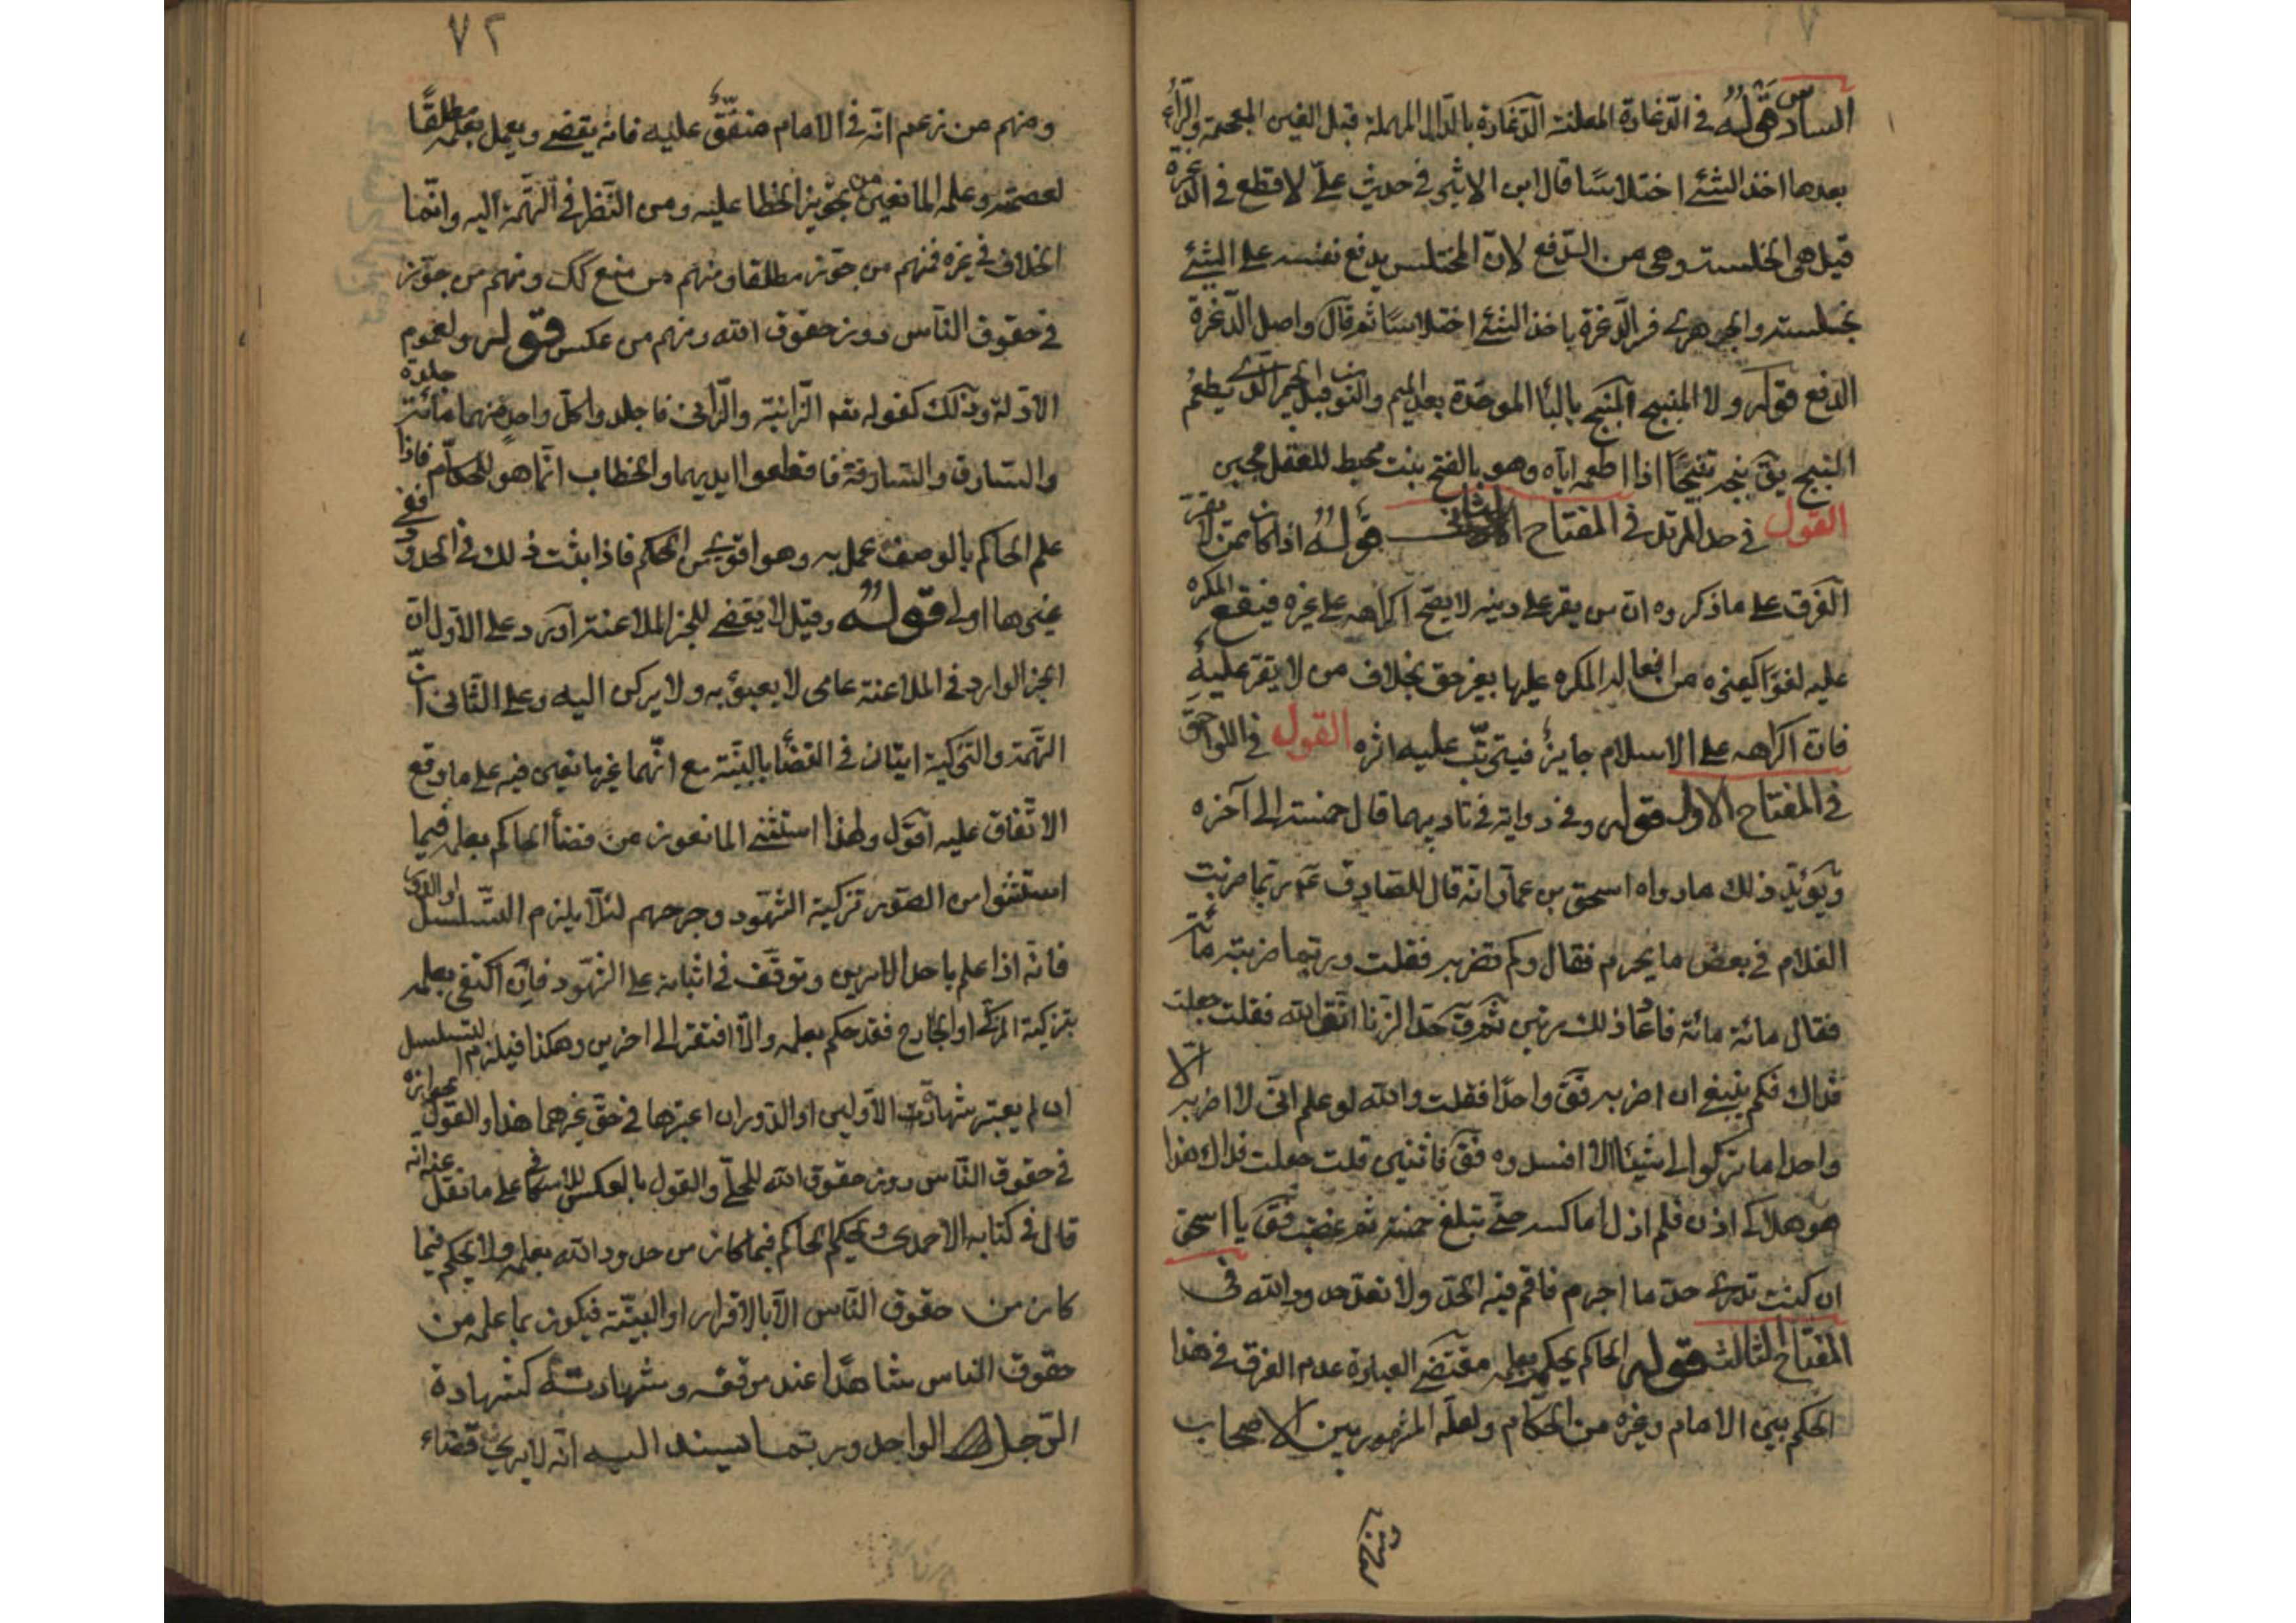 السادس قوله في الدغارة المعلنة الدغارة بالدال المهملة قبل الغين المعجمة والراء
بعدها اخذ الشئ اختلاسًا قال ابن الاثير في حديث علي لا قطع في الدغرة
قيل هي الخلسة وهي من الدفع لان المختلس يدفع نفسه على الشئ
يختلسه والجوهري فسر الدغرة باخذ الشئ اختلاسًا ثم قال واصل الدغرة
الدفع قوله ولا المنبج المنبج بالباء الموحدة بعد الميم والنون قبل الجيم الذي يطعم
البنج يق بنجه تبنيجًا اذا اطعمه اياه وهو بالفتح نبت محيط للعقل مجبن
القول في حد المرتد في المفتاح الثاني قوله اذا كان ممن لا يقر
الفرق على ما ذكروه ان من يقر على دينه لا يصح اكراهه على غيره فيقع المكره
عليه لغوًا كغيره من افعاله المكره عليها بغير حق بخلاف من لا يقر عليه
فان اكراهه على الاسلام جايز فيترتب عليه اثره القول في اللواحق
في المفتاح الاول قوله وفي رواية في تاديبهما قال خمسة الى آخره
ويؤيد ذلك ما رواه اسحق بن عمار انه قال للصادق ع ربما ضربت
الغلام في بعض ما يحرم فقال وكم تضربه فقلت وربما ضربته مائة
فقال مائة مائة فاعاد ذلك مرتين ثم ق حد الزنا اتق الله فقلت جعلت
فداك فكم ينبغي ان اضربه فق واحدًا فقلت والله لو علم اني لا اضربه الا
واحدا ما ترك لي شيئا الا افسده فق فاثنين قلت جعلت فداك هذا
هو هلاكي اذن فلم ازل اماكسه حتى تبلغ خمسة ثم غضب فق يا اسحق
ان كنت تدري حد ما اجرم فاقم فيه الحد ولا تعد حدود الله في
المفتاح الثالث قوله الحاكم يحكم بعلمه مقتضى العبارة عدم الفرق في هذا
الحكم بين الامام وغيره من الحكام ولعله المشهور بين الاصحاب
ومنهم
٧٢
ومنهم من زعم انه في الامام متفق عليه فانه يقضي ويعمل بعلمه مطلقًا
لعصمته وعلمه المانعين من تجويز الخطا عليه ومن النظر في التهمة اليه وانما
الخلاف في غيره فمنهم من جوز مطلقا ومنهم من منع كك ومنهم من جوز
في حقوق الناس دون حقوق الله ومنهم من عكس قوله ولعموم
الادلة وذلك كقوله تعه الزانية والزاني فاجلدوا كل واحد منهما مائة جلدة
والسارق والسارقة فاقطعوا ايديهما والخطاب انما هو للحكام فاذا
علم الحاكم بالوصف عمل به وهو اقوى من الحكم فاذا ثبت ذلك في الحدود ففي
غيرها اولى قوله وقيل لا يقضي للخبر الملاعنة اورد على الاول ان
الخبر الوارد في الملاعنة عامي لا يعبؤ به ولا يركن اليه وعلى الثاني ان
التهمة والتزكية اتيان في القضا بالبينة مع انهما غير مانعين فيه على ما وقع
الاتفاق عليه اقول ولهذا استثنى المانعون من قضأ الحاكم بعلمه فيما
استثنوا من الصور تزكية الشهود وجرحهم لئلا يلزم التسلسل او الدور
فانه اذا علم باحد الامرين وتوقف في اثباته على الشهود فان اكتفى بعلمه
بتزكية المزكي او الجارح فقد حكم بعلمه والا افتقر الى اخرين وهكذا فيلزم التسلسل
ان لم يعتبر شهادة الاولين او الدور ان اعتبرها في حق غيرهما هذا والقول بجوازه
في حقوق الناس دون حقوق الله للحلي والقول بالعكس للاسكافي على ما نقل عنه انه
قال في كتابه الاحمدي ويحكم الحاكم فيما كان من حدود الله بعلمه ولا يحكم فيما
كان من حقوق الناس الا بالاقرار او البينة فيكون بما علمه من
حقوق الناس شاهدًا عند من فوقه وشهادته كشهادة
الرجل الواحد وربما يسند اليه انه لا يرى قضاء